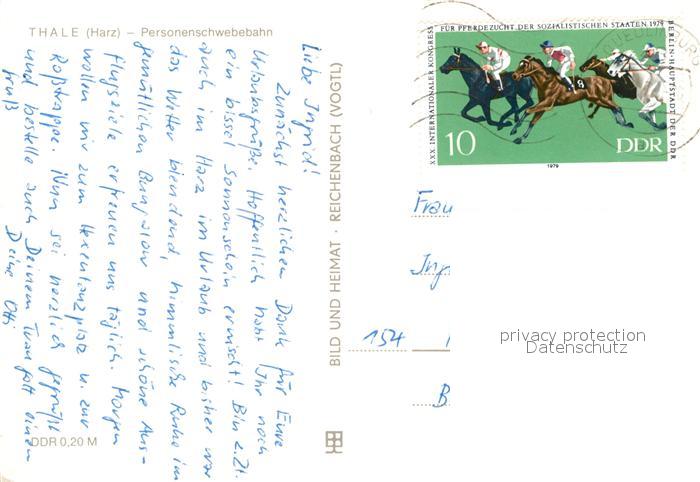 THALE (Harz) – Personenschwebebahn
Liebe Ingrid!
Zunächst herzlichen Dank für Eure
Urlaubsgrüße. Hoffentlich habt Ihr noch
ein bissel Sonnenschein erwischt! Bin z. Zt.
auch im Harz im Urlaub und bisher war
das Wetter blendend, himmlische Ruhe im
gemütlichen Bungalow und schöne Aus-
flugsziele erfreuen uns täglich. Morgen
wollen wir zum Hexentanzplatz u. zur
Roßtrappe. Nun sei herzlich gegrüßt
und bestelle auch Deinem Frank einen
Gruß
Deine Otti
DDR 0,20 M
BILD UND HEIMAT · REICHENBACH (VOGTL)
XXX. INTERNATIONALER KONGRESS
FÜR PFERDEZUCHT DER SOZIALISTISCHEN STAATEN 1979
BERLIN-HAUPTSTADT DER DDR
10
8
DDR
1979
Frau
In
154
B
privacy protection
Datenschutz